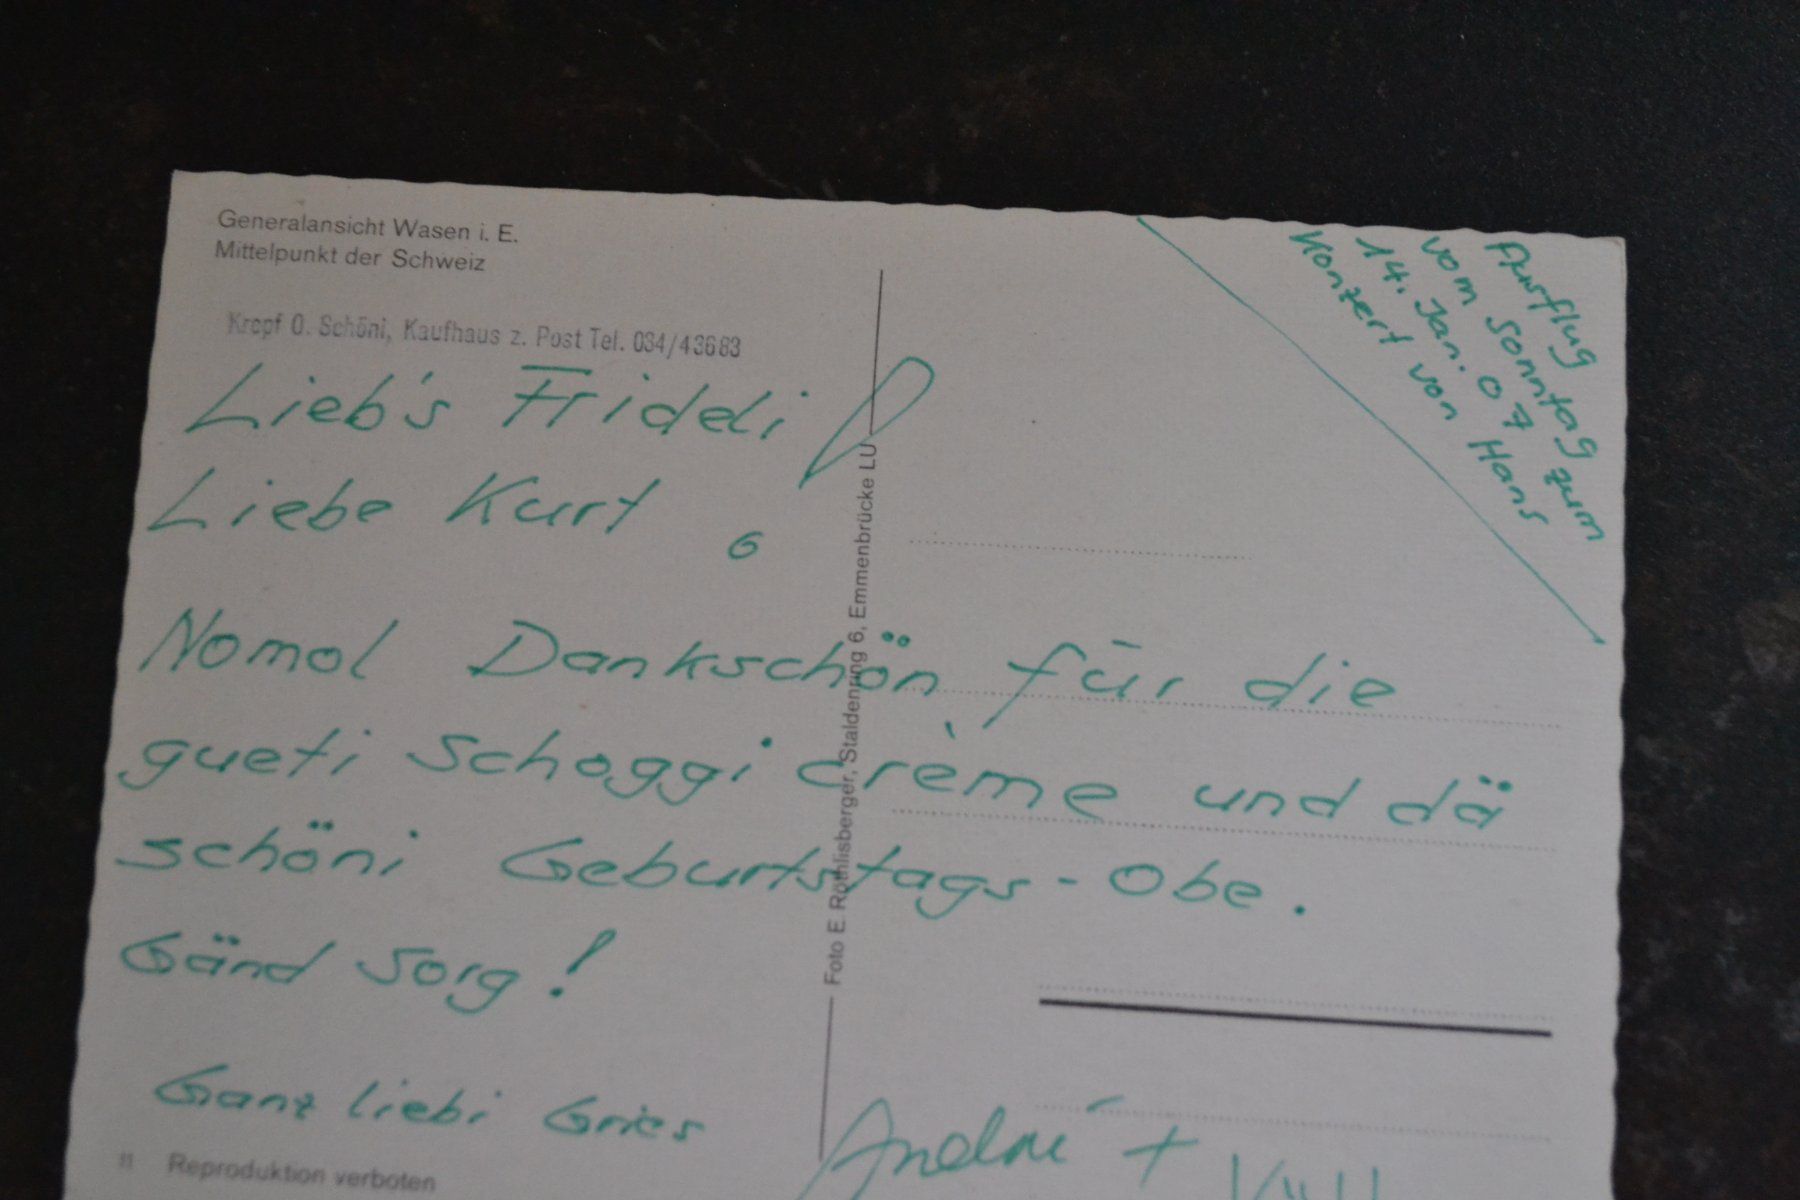 Generalansicht Wasen i. E.
Mittelpunkt der Schweiz
Kropf O. Schöni, Kaufhaus z. Post Tel. 034/43683
Ausflug
vom Sonntag zum
14. Jan. 07
Konzert von Hans
Lieb's Frideli
Liebe Kurt !
Nomol Dankschön für die
gueti Schoggi crème und dä
schöni Geburtstags-Obe.
Gänd Sorg!
Ganz liebi Gries
André +
Foto E. Röthlisberger, Staldenring 6, Emmenbrücke LU
11 Reproduktion verboten